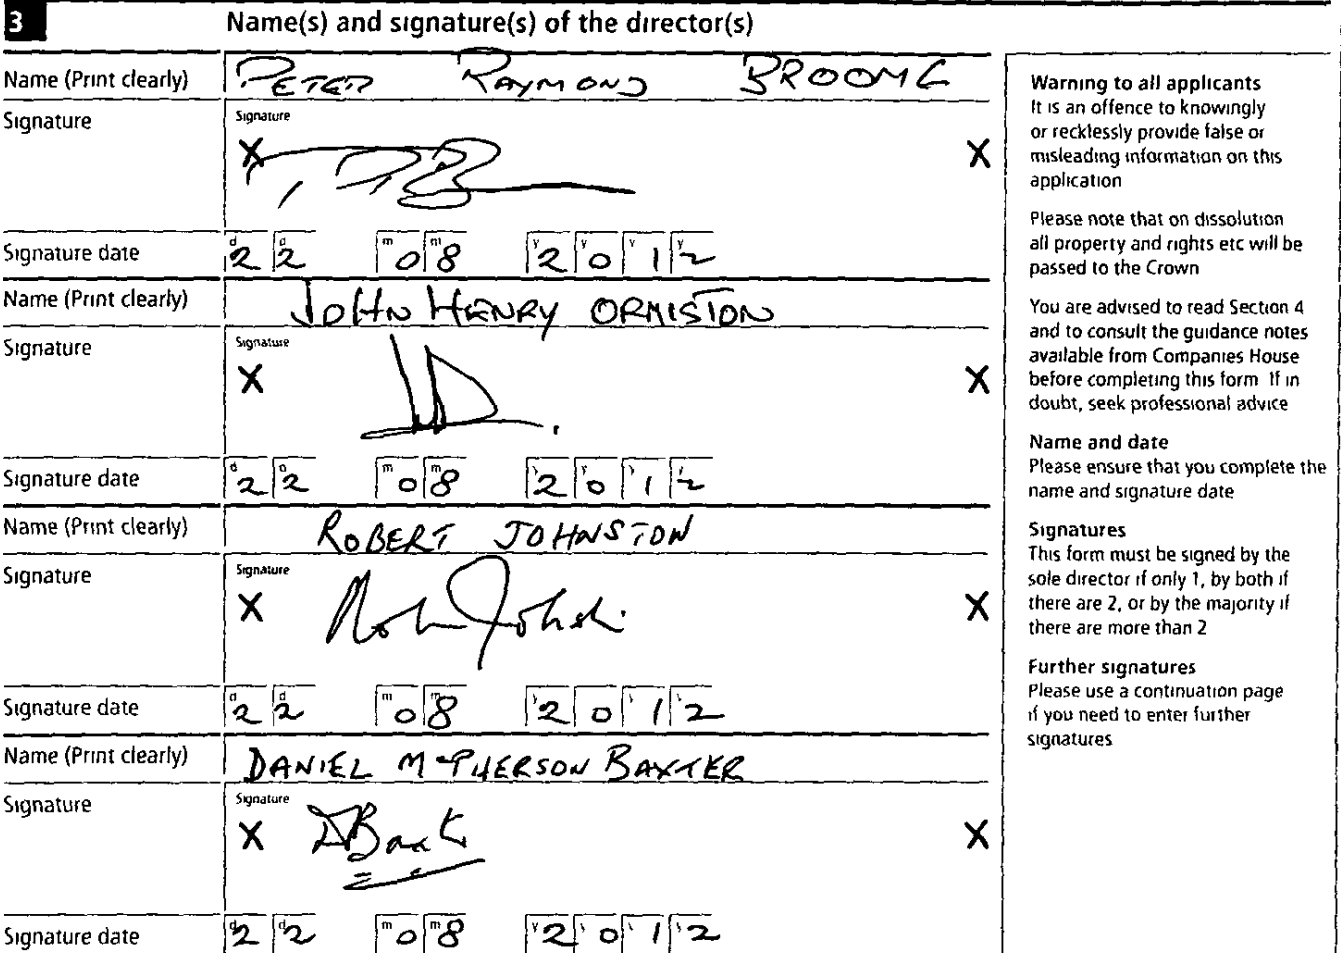 3 Name(s) and signature(s) of the director(s)
Name (Print clearly) PETER RAYMOND BROOME
Signature Signature
X X
Signature date d2 d2 m0 m8 y2 y0 y1 y2
Name (Print clearly) JOHN HENRY ORMISTON
Signature Signature
X X
Signature date 2 2 m0 m8 2 0 1 2
Name (Print clearly) ROBERT JOHNSTON
Signature Signature
X X
Signature date d2 d2 m0 m8 2 0 1 2
Name (Print clearly) DANIEL MCPHERSON BAXTER
Signature Signature
X DBaxt X
Signature date d2 d2 m0 m8 y2 0 1 2
Warning to all applicants
It is an offence to knowingly
or recklessly provide false or
misleading information on this
application
Please note that on dissolution
all property and rights etc will be
passed to the Crown
You are advised to read Section 4
and to consult the guidance notes
available from Companies House
before completing this form If in
doubt, seek professional advice
Name and date
Please ensure that you complete the
name and signature date
Signatures
This form must be signed by the
sole director if only 1, by both if
there are 2, or by the majority if
there are more than 2
Further signatures
Please use a continuation page
if you need to enter further
signatures